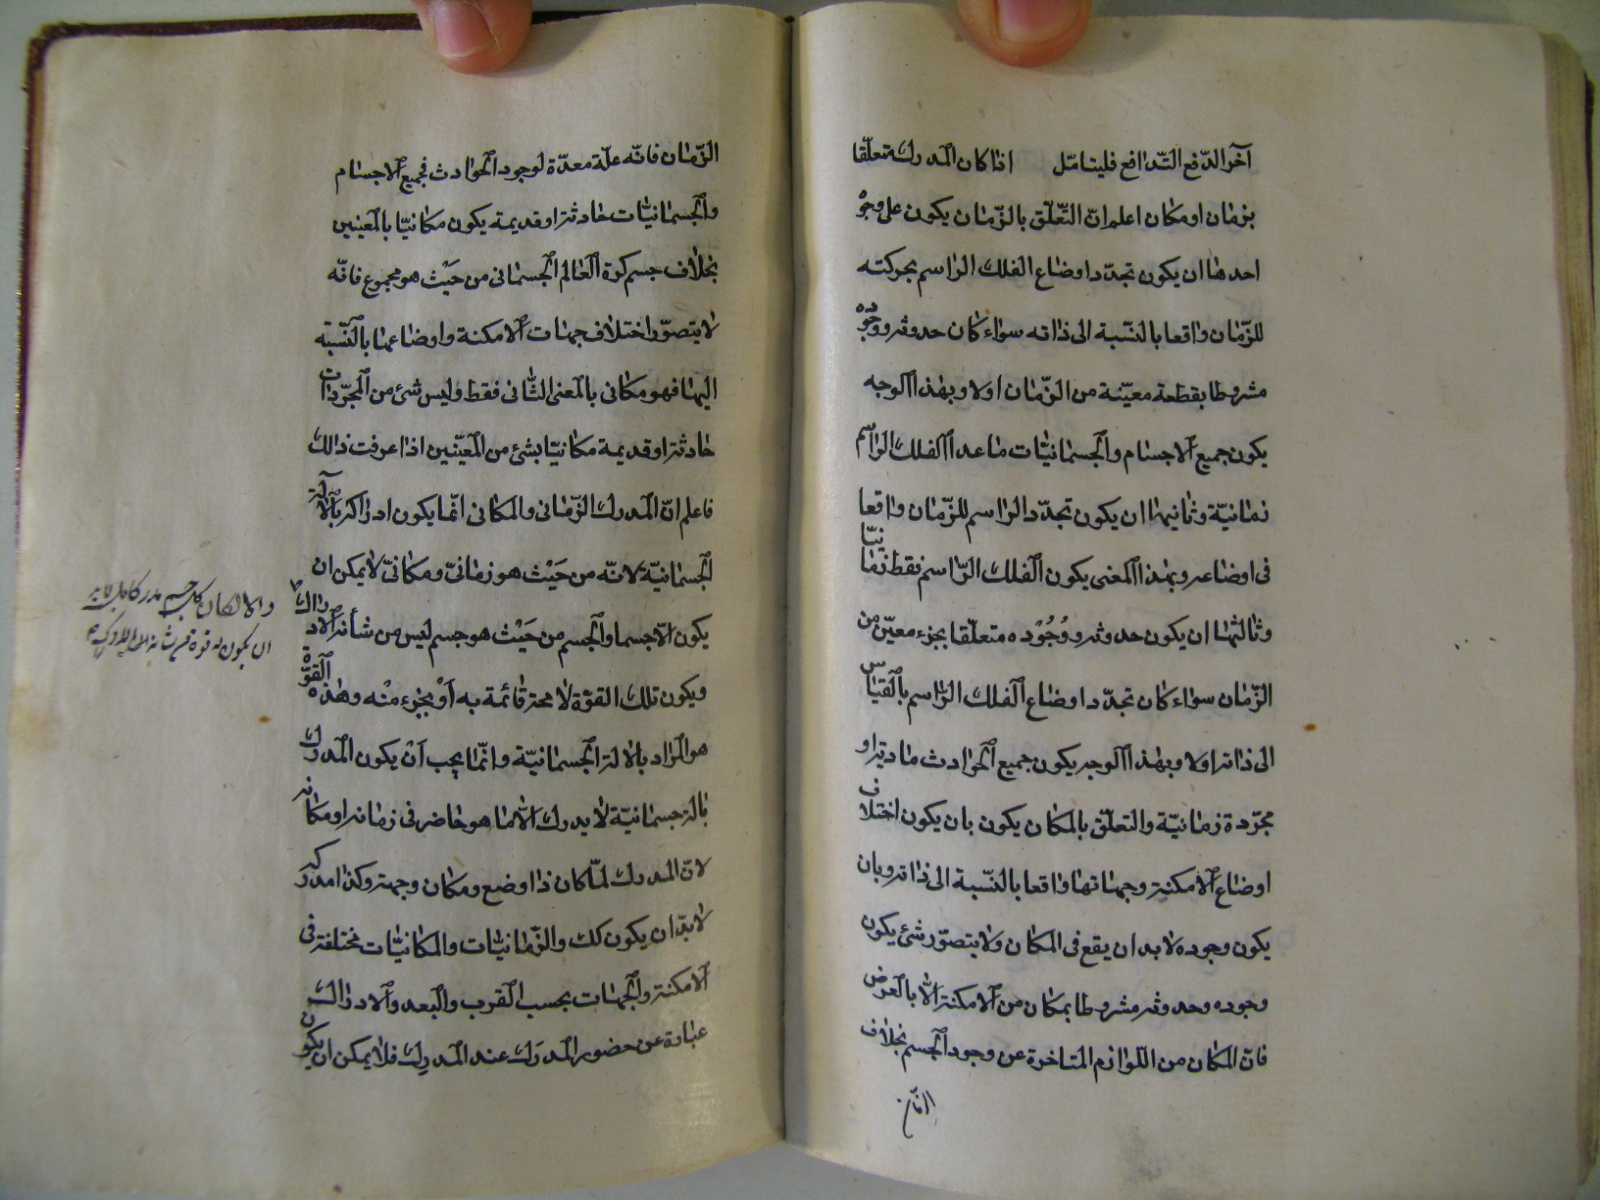 آخر الدّفع التّدافع فليتامّل اذا كان المدرك متعلّقا
بزمان او مكان اعلم انّ التّعلّق بالزّمان يكون على وجوه
احدها ان يكون تجدّد اوضاع الفلك الراسم بحركته
للزّمان واقعا بالنّسبة الى ذاته سواء كان حدوثه ووجوده
مشروطا بقطعة معيّنة من الزّمان اولا وبهذا الوجه
يكون جميع الاجسام والجسمانيّات ماعدا الفلك الرّاسم
زمانيّة وثانيها ان يكون تجدّد الراسم للزّمان واقعا
فى اوضاعه وبهذا المعنى يكون الفلك الرّاسم فقط زمانيّا
وثالثها ان يكون حدوثه ووُجُوْده متعلّقا بجزء معيّن من
الزّمان سواء كان تجدّد اوضاع الفلك الرّاسم بالقياس
الى ذاته اولا وبهذا الوجه يكون جميع الحوادث مادية او
مجرّدة زمانيّة والتعلّق بالمكان يكون بان يكون اختلاف
اوضاع الامكنة وجهاتها واقعا بالنّسبة الى ذاته وبان
يكون وجوده لابد ان يقع فى المكان ولايتصوّر شئ يكون
وجوده وحدوثه مشروطا بمكان من الامكنة الّا بالعرض
فانّ المكان من اللّوازم المتاخرة عن وجود الجسم بخلاف
الزّمان
الزّمان فانّه علّة معدّة لوجود الحوادث فجميع الاجسام
والجسمانيّات حادثة او قديمة يكون مكانيّا بالمعنيين
بخلاف جسم كرة العالم الجسمانى من حَيْث هو مجموع فانّه
لايتصوّر اختلاف جهات الامكنة واوضاعها بالنّسبة
اليها فهو مكانى بالمعنى الثّانى فقط وليس شئ من المجرّدات
حادثة او قديمة مكانيّا بشئ من المعنيين اذا عرفت ذالك
فاعلم انّ المدرك الزّمانى والمكانى انّما يكون ادراكه بالآلة
الجسمانيّة لانّه من حَيْث هو زمانىّ ومكانىّ لايمكن ان
يكون الّا جسما والجسم من حَيْث هو جسم ليس من شأنه الادراك
ويكون تلك القوّة لا محة قائمة به اَوْ بجزء منْه وهذه القوّة
هو المراد بالالة الجسمانيّة وانّما يجب اَنْ يكون المدرك
بالة جسمانيّة لا يدرك الّا ما هو حاضر فى زمانه او مكانه
لانّ المدرك لمّا كان ذا وضع ومكان وجهة وكذا مدركه
لابدّ ان يكون كك والزّمانيّات والمكانيّات مختلفة فى
الامكنة والجهات بحسب القرب والبعد والادراك
عبارة عن حضور المدرَك عند المدرِك فلا يمكن ان يكون
والا لكان كل جسم مدركا بل لابد
ان يكون له قوة من شانه